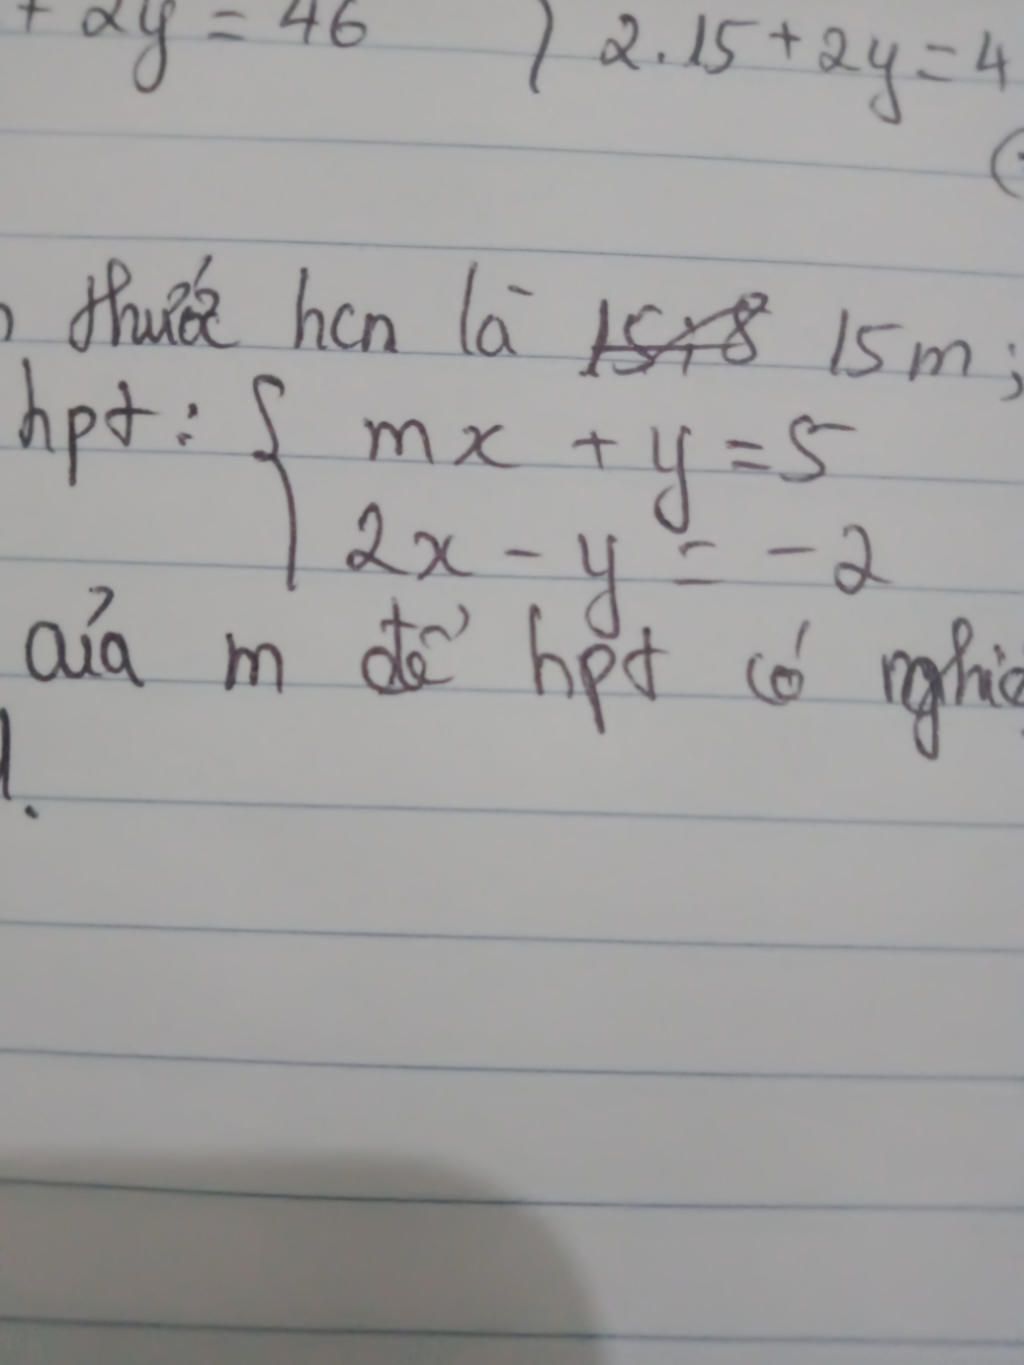 + 2y = 46 2.15 + 2y = 4
thước hcn là 15m;
hpt: { mx + y = 5
2x - y = -2
của m để hpt có
1.